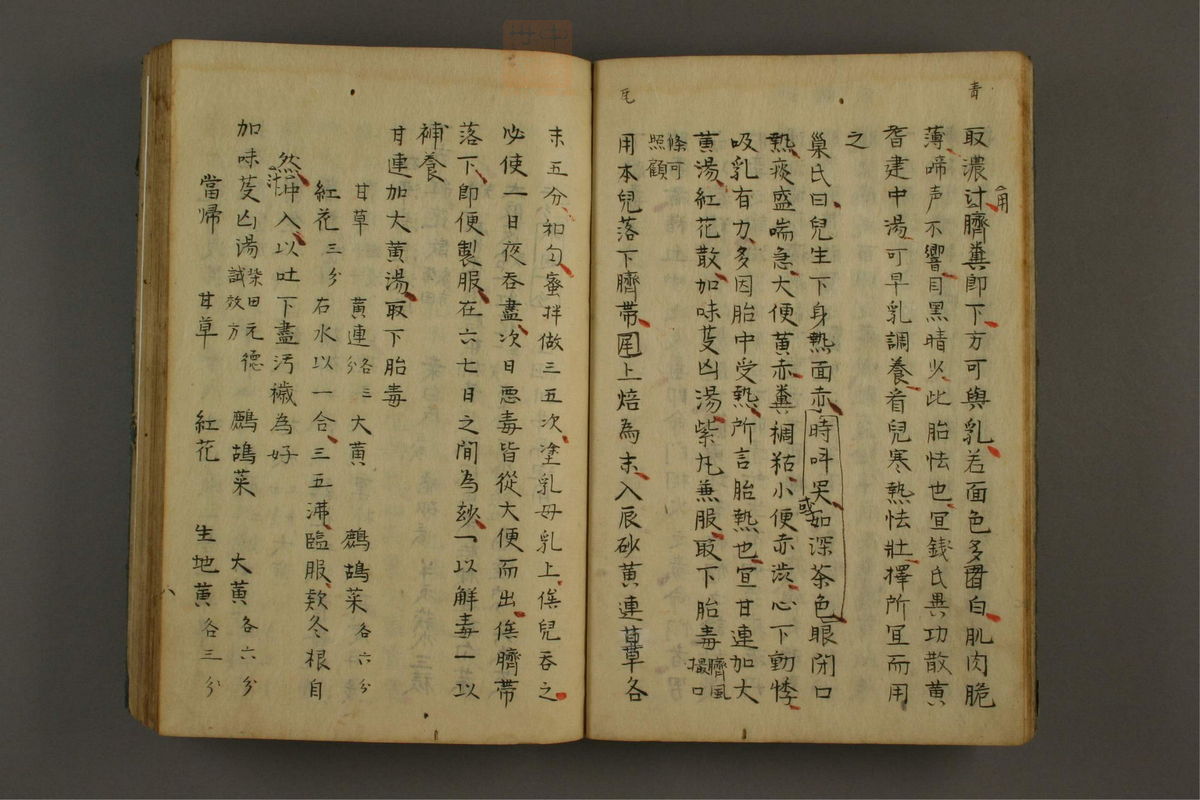 青
取濃汁臍糞即下方可與乳若面色多㿠白肌肉脆
角
薄啼声不響目黑睛少此胎怯也宜錢氏異功散黄
耆建中湯可早乳調養看兒寒熱怯壯擇所宜而用
之
巢氏曰兒生下身熱面赤時叫哭或如深茶色眼閉口
熱痰盛喘急大便黄赤糞稠粘小便赤澁心下動悸
吸乳有力多因胎中受熱所言胎熱也宜甘連加大
黄湯紅花散加味芟凶湯紫丸兼服取下胎毒臍風撮口
條可照顧
瓦
用本兒落下臍帶囲上焙為末入辰砂黄連草各
末五分和匀蜜拌做三五次塗乳母乳上俟兒吞之
必使一日夜吞盡次日悪毒皆從大便而出俟臍帶
落下即便製服在六七日之間為玅一以解毒一以
補養
甘連加大黄湯取下胎毒
甘草 黄連各三分 大黄 鷓鴣菜各六分
紅花三分 右水以一合三五沸臨服欵冬根自
然汁冲入以吐下盡污穢為好
加味芟凶湯柴田元德試效方 鷓鴣菜 大黄各六分
當帰 甘草 紅花 生地黄各三分